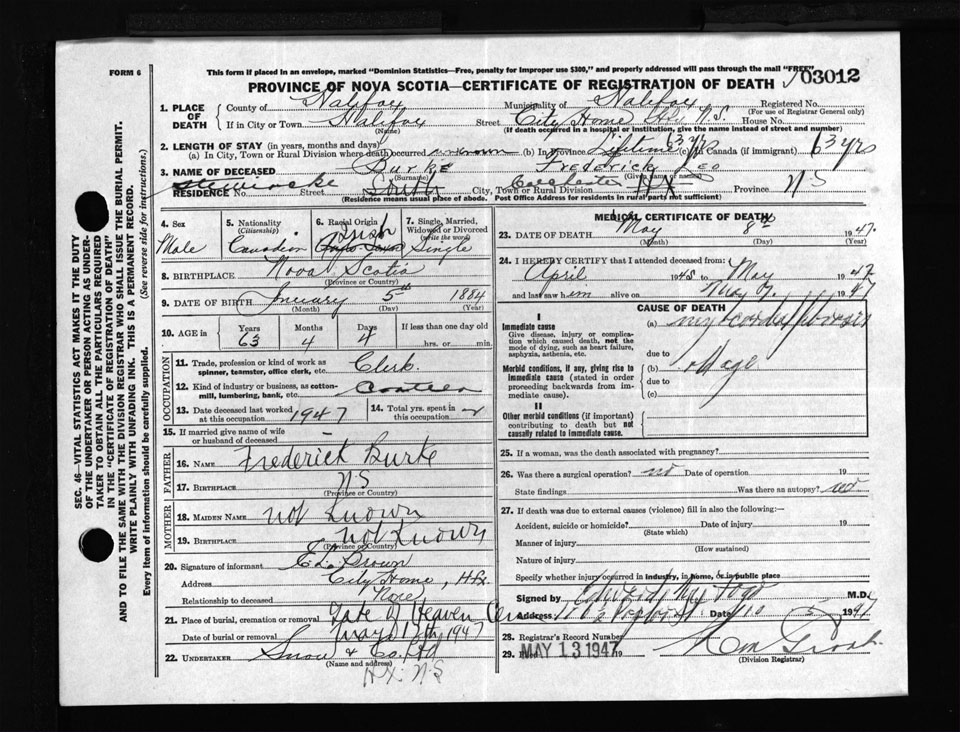 FORM 6
This form if placed in an envelope, marked "Dominion Statistics—Free, penalty for improper use $300," and properly addressed will pass through the mail "FREE"
PROVINCE OF NOVA SCOTIA—CERTIFICATE OF REGISTRATION OF DEATH
03012
1. PLACE OF DEATH County of Halifax Municipality of Halifax Registered No.
(For use of Registrar General only)
If in City or Town Halifax Street City Home N.S. House No.
(Name) (If death occurred in a hospital or institution, give the name instead of street and number)
2. LENGTH OF STAY (in years, months and days)
(a) In City, Town or Rural Division where death occurred unknown (b) In Province Lifetime 63 yrs (c) in Canada (if immigrant) 63 yrs
3. NAME OF DECEASED Burke Frederick Leo
(Surname) (Given name)
RESIDENCE No. Street South City, Town or Rural Division HX Province N S
(Residence means usual place of abode. Post Office Address for residents in rural parts not sufficient)
4. Sex Male
5. Nationality (Citizenship) Canadian
6. Racial Origin Irish
7. Single, Married, Widowed or Divorced (write the word) Single
8. BIRTHPLACE Nova Scotia
(Province or Country)
9. DATE OF BIRTH January 5th 1884
(Month) (Day) (Year)
10. AGE in Years 63 Months 4 Days 4 If less than one day old hrs. or min.
OCCUPATION
11. Trade, profession or kind of work as spinner, teamster, office clerk, etc. Clerk
12. Kind of industry or business, as cotton-mill, lumbering, bank, etc. Canteen
13. Date deceased last worked at this occupation 1947
14. Total yrs. spent in this occupation 2
15. If married give name of wife or husband of deceased –
FATHER
16. NAME Frederick Burke
17. BIRTHPLACE N S
(Province or Country)
MOTHER
18. MAIDEN NAME Not Known
19. BIRTHPLACE Not Known
(Province or Country)
20. Signature of informant Brown
Address City Home, Hx.
Relationship to deceased None
21. Place of burial, cremation or removal Gate of Heaven Cem
Date of burial or removal May 1947
22. UNDERTAKER Snow & Co Ltd
(Name and address)
HX. N.S
MEDICAL CERTIFICATE OF DEATH
23. DATE OF DEATH May 8th 1947.
(Month) (Day) (Year)
24. I HEREBY CERTIFY that I attended deceased from:
April 1945 to May 1947
and last saw him alive on May 7. 1947
CAUSE OF DEATH
I
Immediate cause
Give disease, injury or complication which caused death, not the mode of dying, such as heart failure, asphyxia, asthenia, etc.
(a)
due to
Morbid conditions, if any, giving rise to immediate cause (stated in order proceeding backwards from immediate cause).
(b) old age
due to
(c)
II
Other morbid conditions (if important) contributing to death but not causally related to immediate cause.
25. If a woman, was the death associated with pregnancy?
26. Was there a surgical operation? no Date of operation 19
State findings Was there an autopsy? no
27. If death was due to external causes (violence) fill in also the following:—
Accident, suicide or homicide? Date of injury 19
(State which)
Manner of injury
(How sustained)
Nature of injury
Specify whether injury occurred in industry, in home, or in public place
Signed by M.D.
Address Date 194
28. Registrar's Record Number
29. MAY 13 1947 19
(Division Registrar)
SEC. 46—VITAL STATISTICS ACT MAKES IT THE DUTY OF THE UNDERTAKER OR PERSON ACTING AS UNDERTAKER TO OBTAIN ALL THE PARTICULARS REQUIRED IN THE "CERTIFICATE OF REGISTRATION OF DEATH" AND TO FILE THE SAME WITH THE DIVISION REGISTRAR WHO SHALL ISSUE THE BURIAL PERMIT.
WRITE PLAINLY WITH UNFADING INK. THIS IS A PERMANENT RECORD.
Every item of information should be carefully supplied. (See reverse side for instructions.)